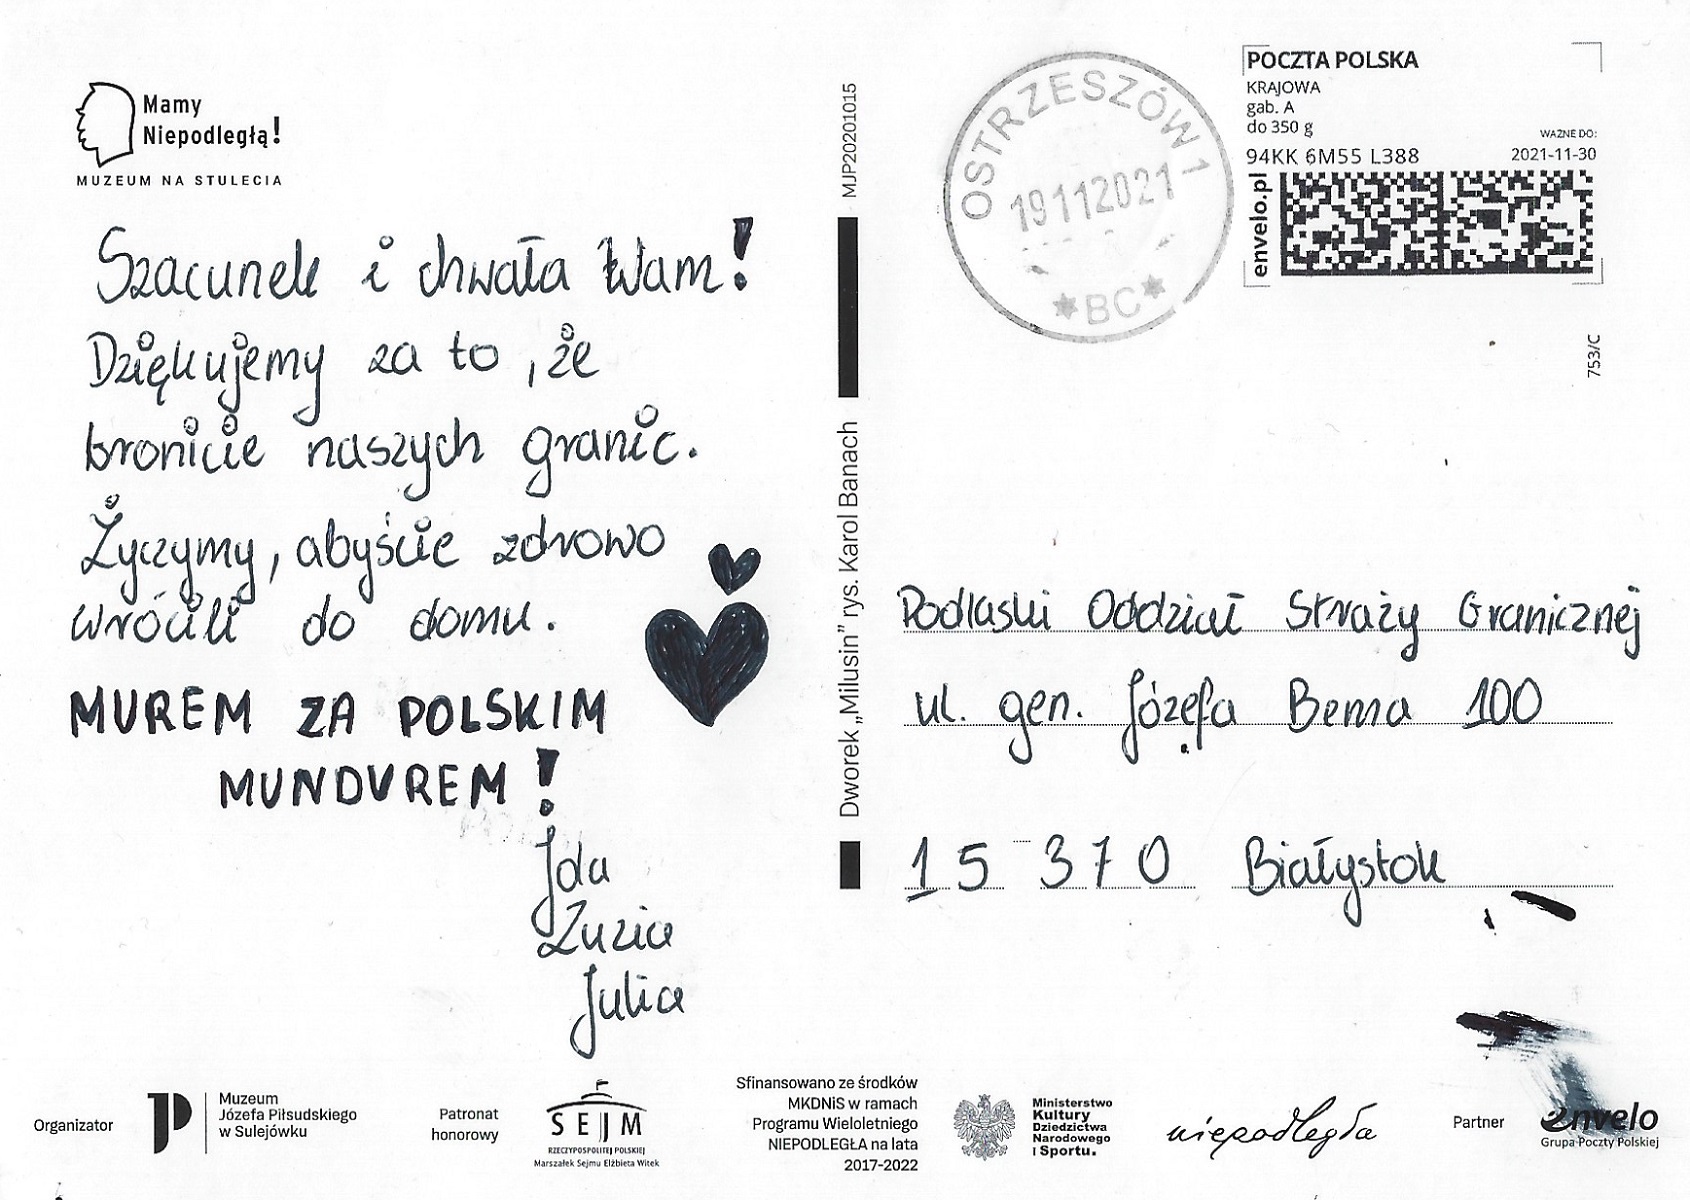 Mamy
Niepodległą!
MUZEUM NA STULECIA
Szacunek i chwała Wam!
Dziękujemy za to, że
bronicie naszych granic.
Życzymy, abyście zdrowo
wrócili do domu.
MUREM ZA POLSKIM
MUNDUREM!
Ida
Zuzia
Julia
MJP20201015
Dworek „Milusin” rys. Karol Banach
OSTRZESZÓW 1
19112021
*BC*
POCZTA POLSKA
KRAJOWA
gab. A
do 350 g
WAŻNE DO:
94KK 6M55 L388 2021-11-30
envelo.pl
753/C
Podlaski Oddział Straży Granicznej
ul. gen. Józefa Bema 100
15 370 Białystok
Organizator
Muzeum
Józefa Piłsudskiego
w Sulejówku
Patronat
honorowy
SEJM
RZECZYPOSPOLITEJ POLSKIEJ
Marszałek Sejmu Elżbieta Witek
Sfinansowano ze środków
MKDNiS w ramach
Programu Wieloletniego
NIEPODLEGŁA na lata
2017-2022
Ministerstwo
Kultury
Dziedzictwa
Narodowego
i Sportu.
niepodległa
Partner
envelo
Grupa Poczty Polskiej